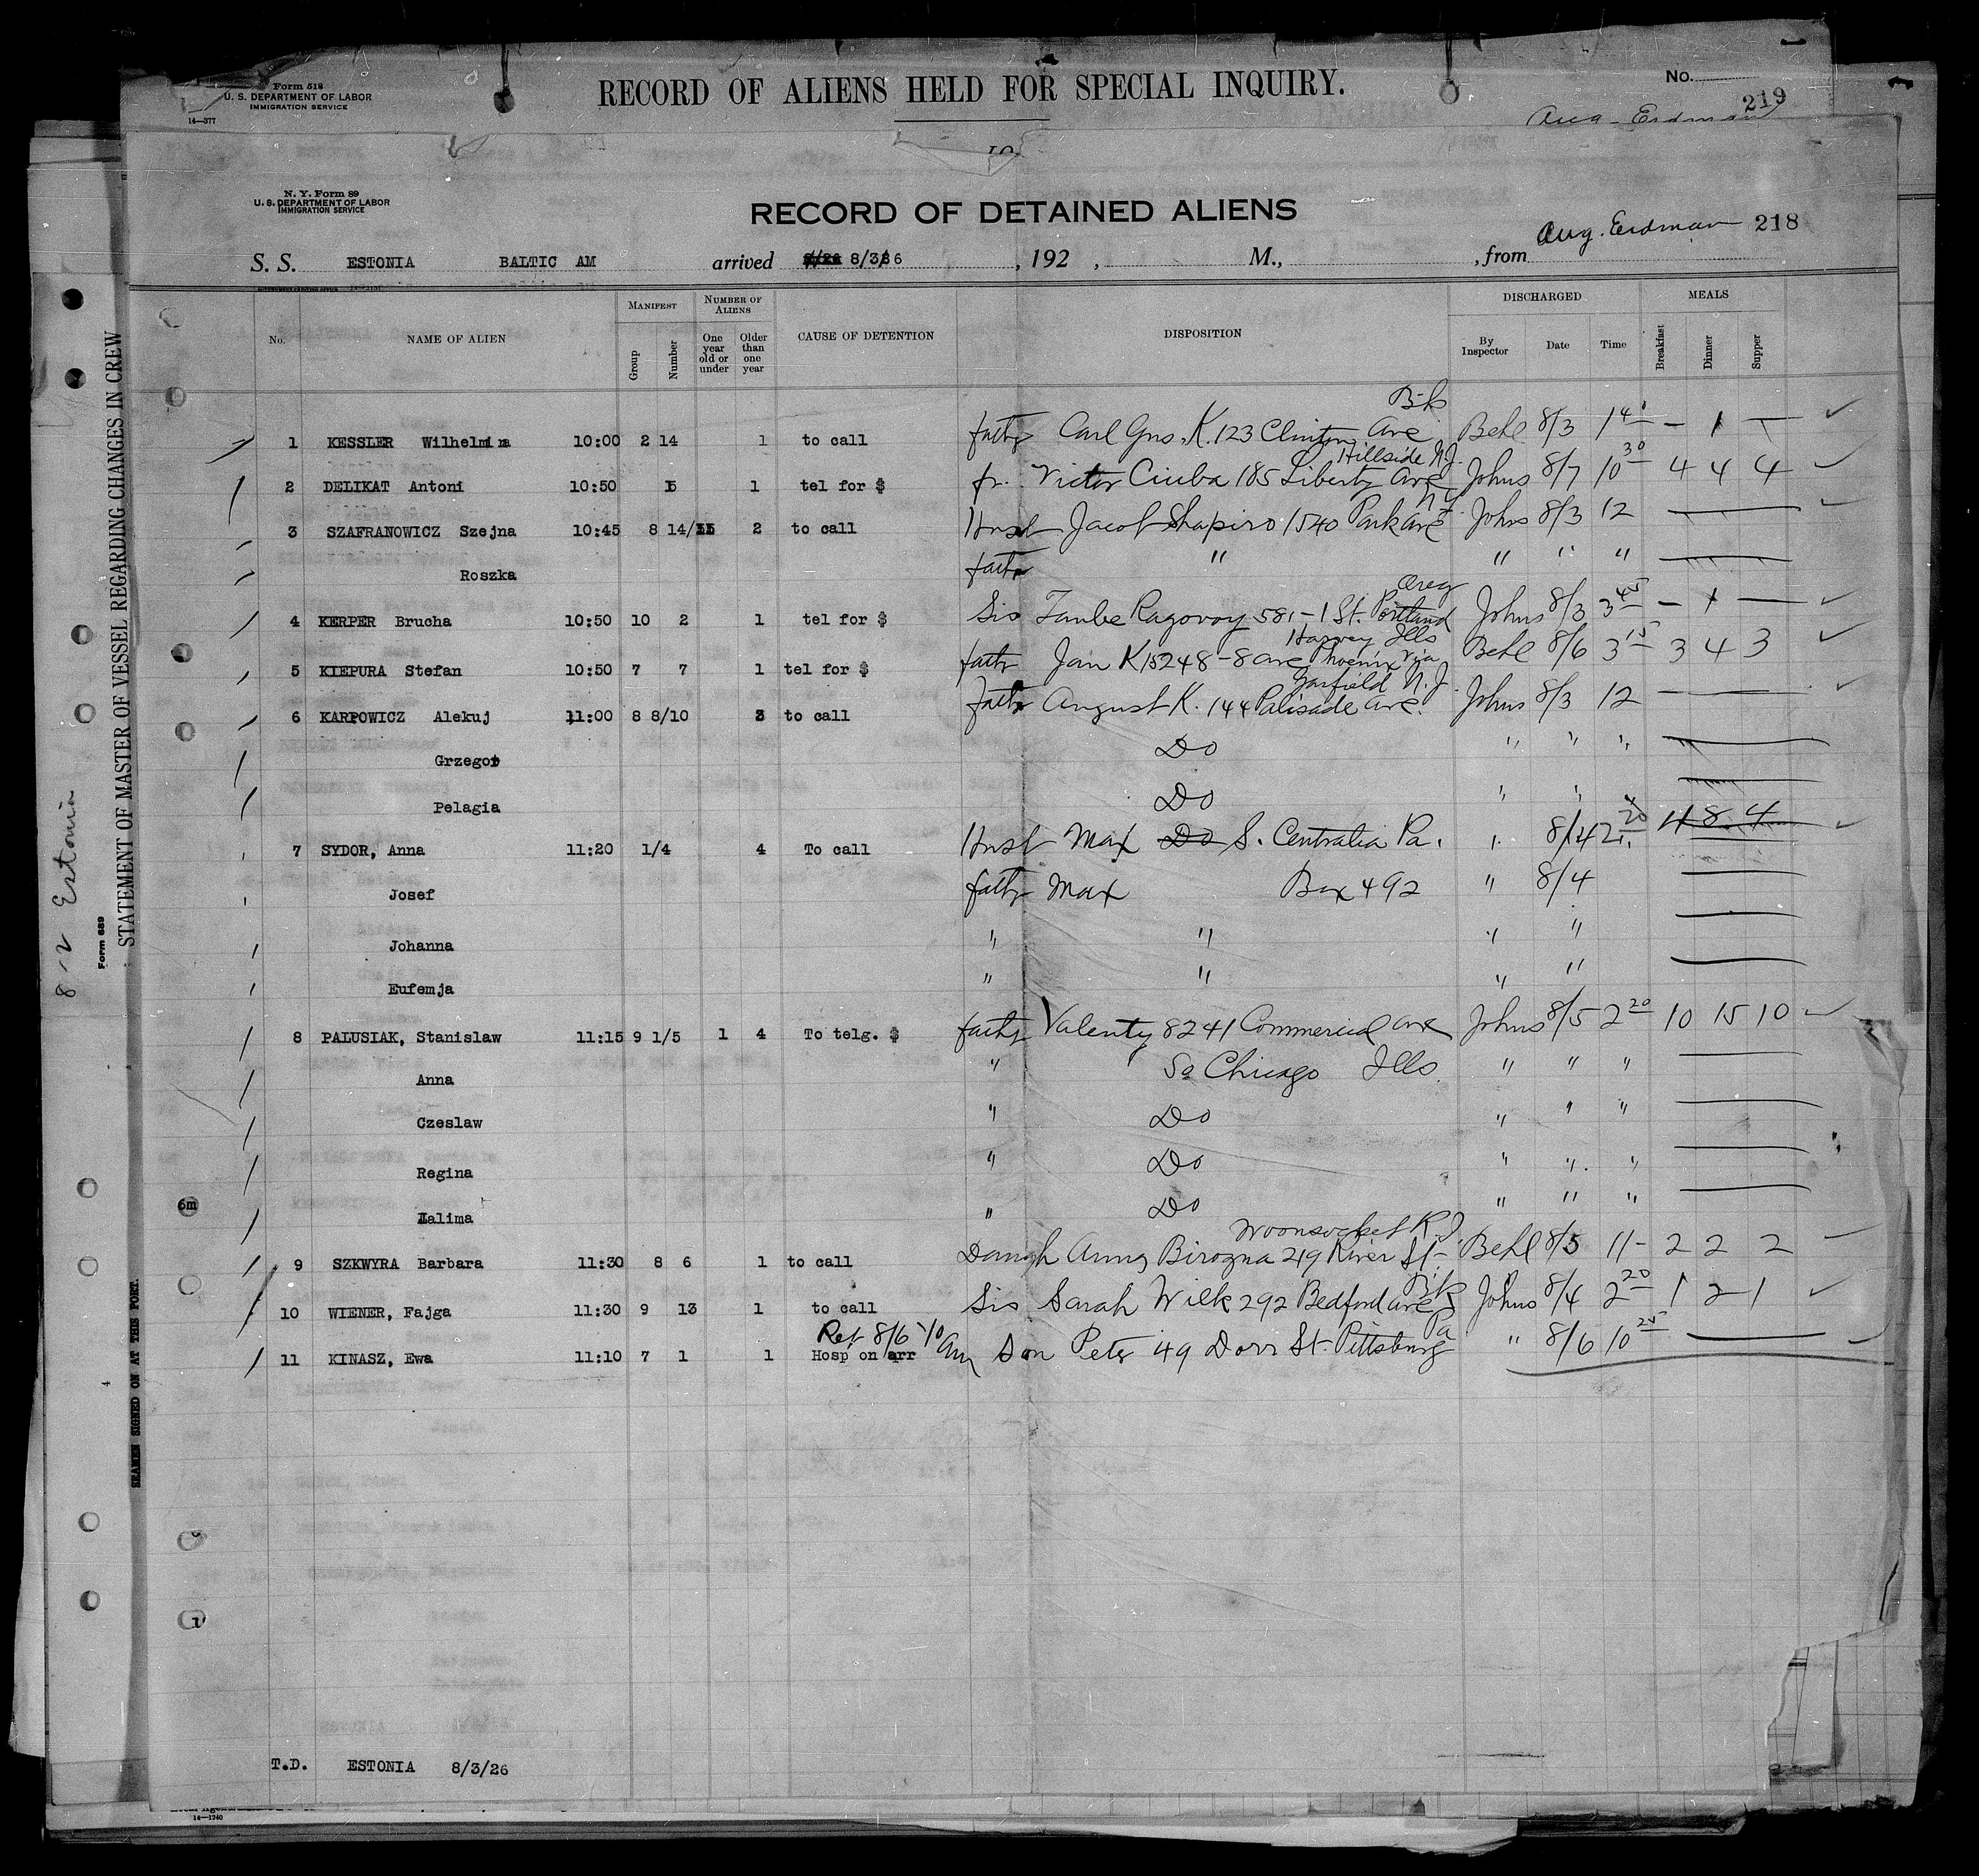 Form 519
U. S. DEPARTMENT OF LABOR
IMMIGRATION SERVICE
14—377
RECORD OF ALIENS HELD FOR SPECIAL INQUIRY.
No.
219
Aug. Erdman
N. Y. Form 89
U. S. DEPARTMENT OF LABOR
IMMIGRATION SERVICE
RECORD OF DETAINED ALIENS
Aug. Erdman 218
S. S. ESTONIA BALTIC AM arrived 8/3/26 , 192 , M., , from
No. NAME OF ALIEN MANIFEST Group Number NUMBER OF ALIENS One year old or under Older than one year CAUSE OF DETENTION DISPOSITION DISCHARGED By Inspector Date Time MEALS Breakfast Dinner Supper
Bik
1 KESSLER Wilhelmina 10:00 2 14 1 to call fathr Carl Gus. K. 123 Clinton Ave Behl 8/3 1 — 1 —
Hillside N.J.
2 DELIKAT Antoni 10:50 15 1 tel for $ fr. Victor Ciuba 185 Liberty Ave Johns 8/7 10 30 4 4 4
N.Y.
3 SZAFRANOWICZ Szejna 10:45 8 14/15 2 to call Husb Jacob Shapiro 1540 Park Ave Johns 8/3 12
Roszka fathr " " " "
Oreg
4 KERPER Brucha 10:50 10 2 1 tel for $ Sis Taube Ragovoy 581-1 St. Portland Johns 8/3 3 45 — 1 —
Harvey Ills
5 KIEPURA Stefan 10:50 7 7 1 tel for $ fathr Jan K 15248-8 ave Phoenix via Behl 8/6 3 15 3 4 3
Garfield N.J.
6 KARPOWICZ Alekuj 11:00 8 8/10 3 to call fathr August K. 144 Palisade Ave. Johns 8/3 12
Grzegor Do " " "
Pelagia Do " "
7 SYDOR, Anna 11:20 1/4 4 To call Husb Max Do S. Centralia Pa. " 8/4 2 20 4 8 4
Josef fathr Max Box 492 " 8/4
Johanna " " " "
Eufemja " " " "
8 PALUSIAK, Stanislaw 11:15 9 1/5 1 4 To telg. $ fathr Valenty 8241 Commercial ave Johns 8/5 2 20 10 15 10
Anna " So Chicago Ills. " " "
Czeslaw " Do " " "
Regina " Do " " "
Halima " Do " " "
Woonsocket R.I.
9 SZKWYRA Barbara 11:30 8 6 1 to call Daugh Anna Birogna 219 River St- Behl 8/5 11- 2 2 2
Bik
10 WIENER, Fajga 11:30 9 13 1 to call Sis Sarah Wilk 292 Bedford ave Johns 8/4 2 20 1 2 1
Ret 8/6 10 am Pa
11 KINASZ, Ewa 11:10 7 1 1 Hosp on arr Son Peter 49 Dorr St. Pittsburg " 8/6 10 25
T.D. ESTONIA 8/3/26
14—1240
8-2 Estonia
Form 689
STATEMENT OF MASTER OF VESSEL REGARDING CHANGES IN CREW
SEAMEN SIGNED ON AT THIS PORT.
6m